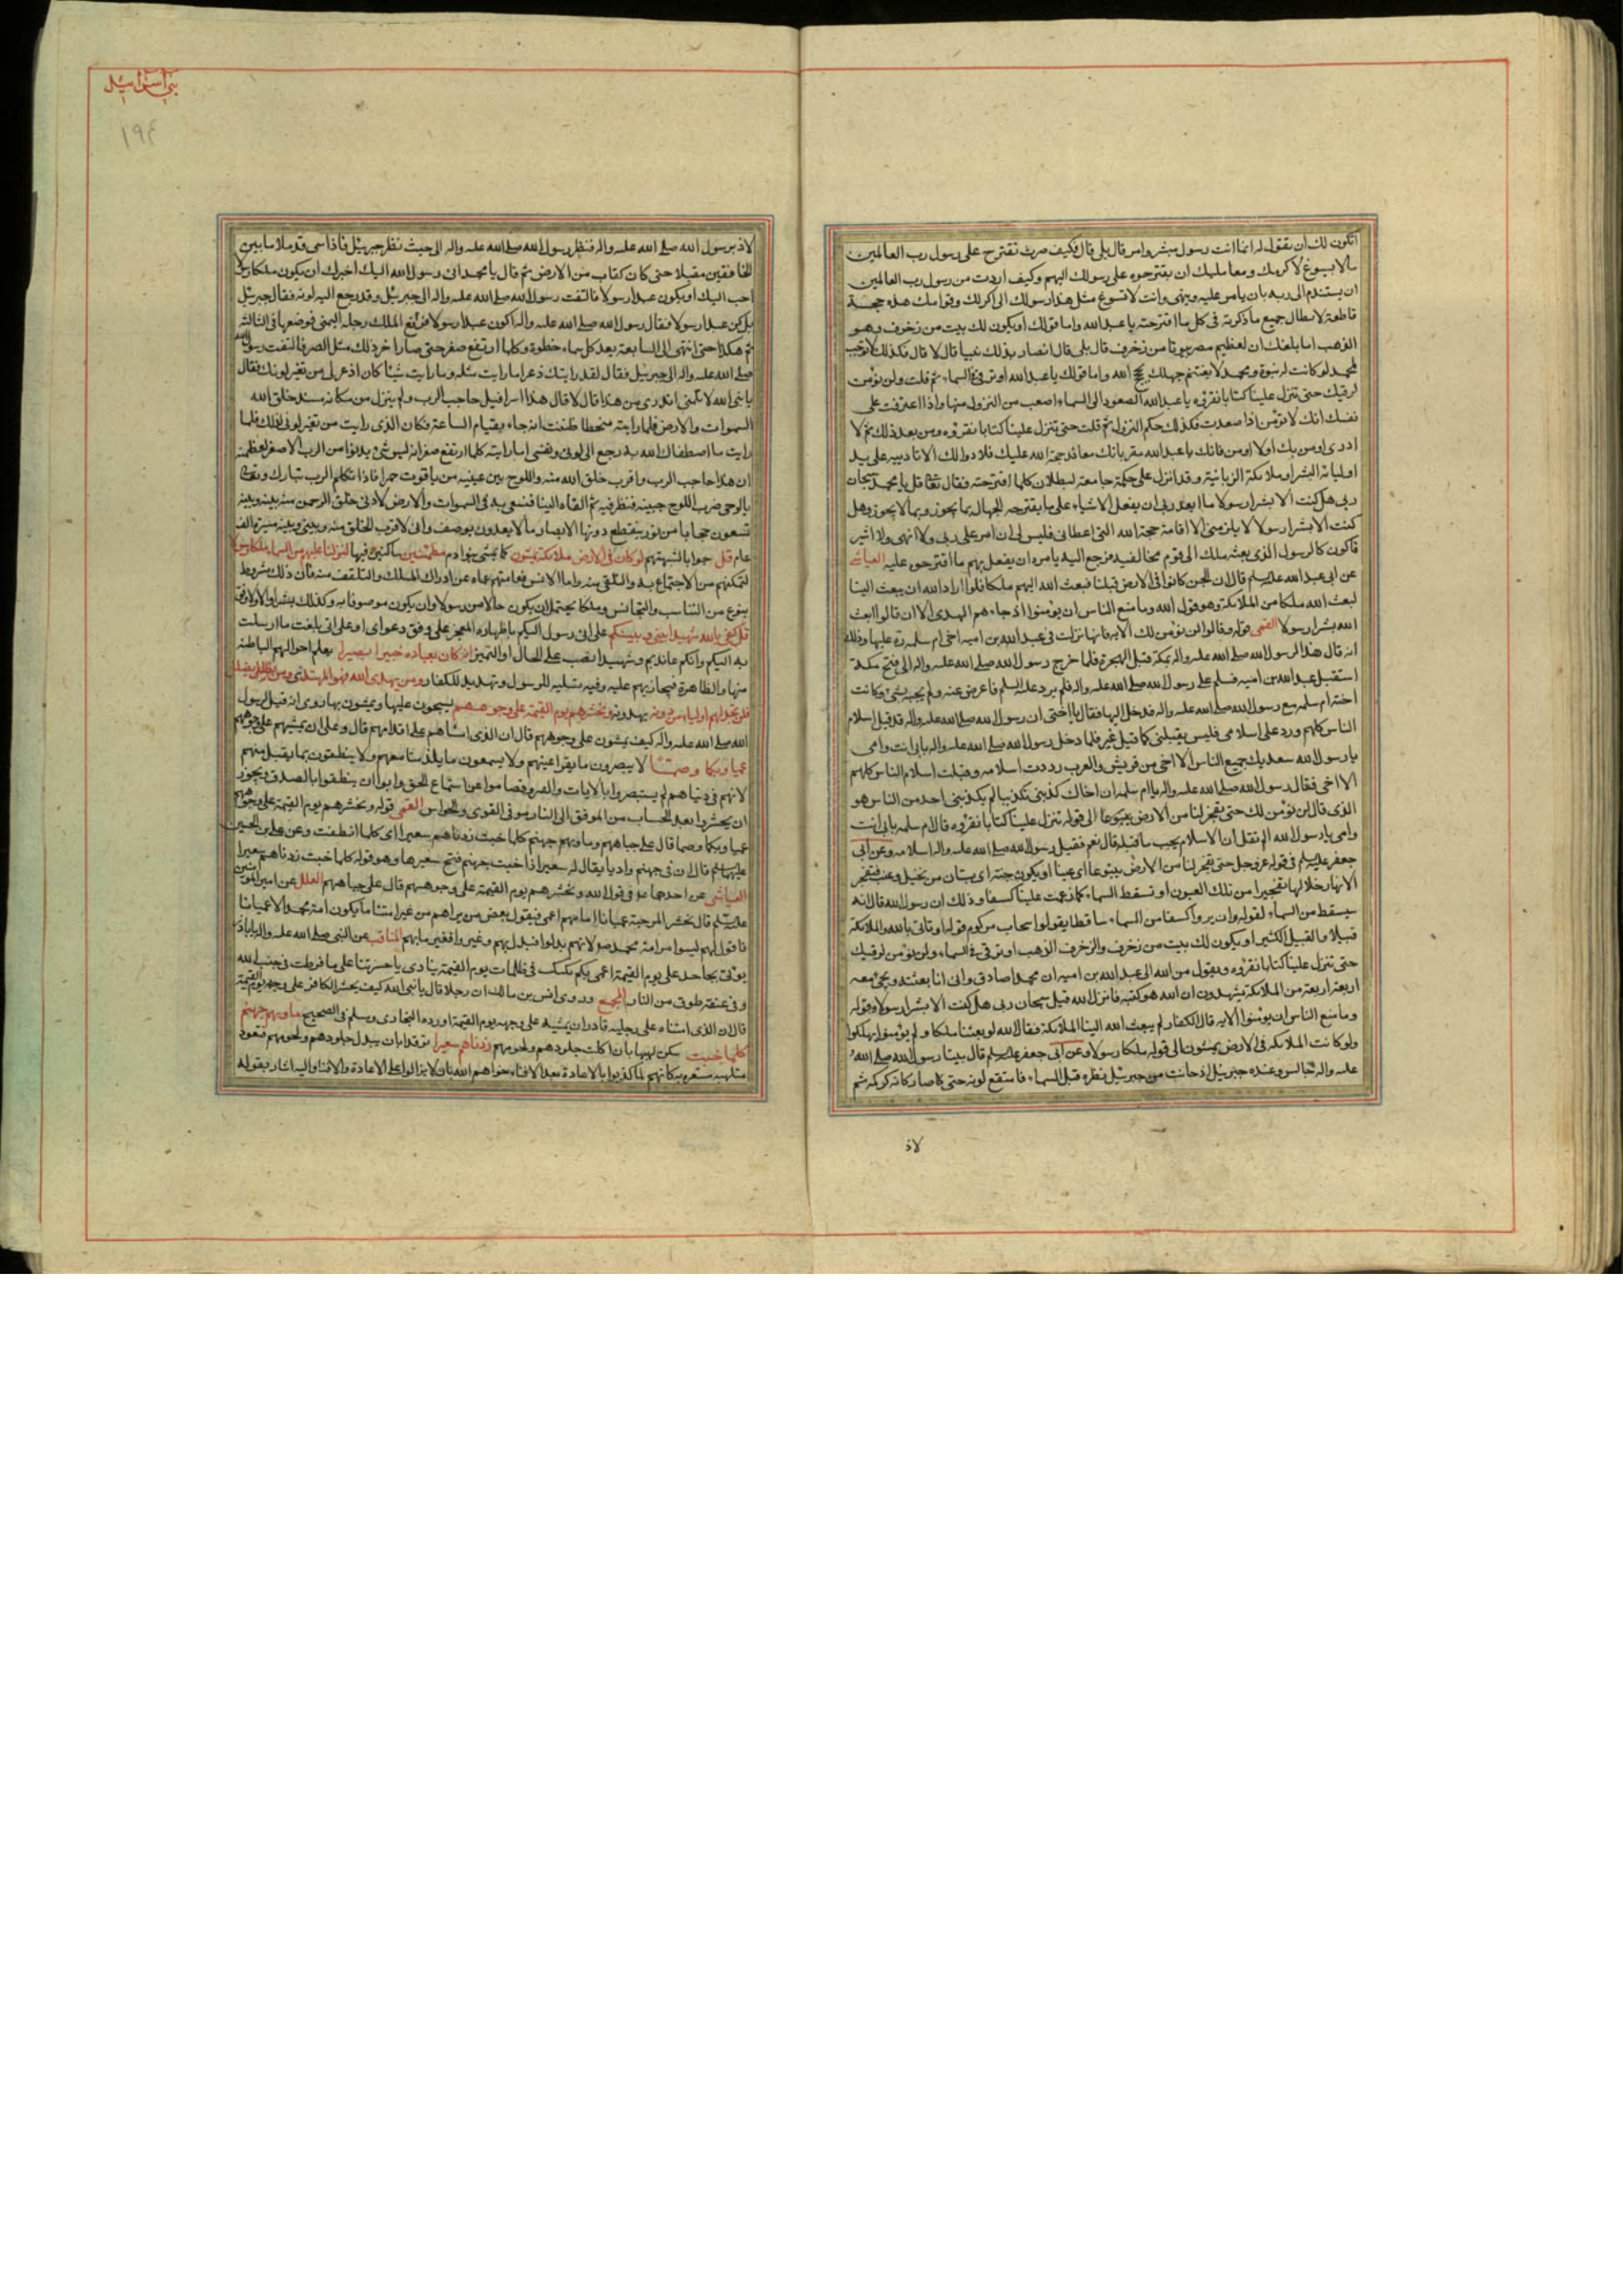 اتكون لك ان يقول له انما انت رسول مبشر وامر قال بلى قال فكيف صرت تقترح على رسول رب العالمين
ما لا يسوغ لاكرتك ومعامليك ان يقترحوه على رسولك اليهم وكيف اردت من رسول رب العالمين
ان يستذم الى ربه بان يامر عليه وينهى وانت لا تسوغ مثل هذا رسولك الى اكرتك وقوامك هذه حجة
قاطعة لابطال جميع ما ذكرته في كل ما اقترحته يا عبد الله واما قولك او يكون لك بيت من زخرف وهو
الذهب اما بلغك ان لعظيم مصر بيوتا من زخرف قال بلى قال افصار بذلك نبيا قال لا قال فكذلك لا توجب
لمحمد لو كانت له نبوة ومحمد لا يغتنم جهلك بحجج الله واما قولك يا عبد الله او ترقى في السماء ثم قلت ولن نؤمن
لرقيك حتى تنزل علينا كتابا نقرؤه يا عبد الله الصعود الى السماء اصعب من النزول منها واذا اعترفت على
نفسك انك لا تؤمن اذا صعدت فكذلك حكم النزول ثم قلت حتى تنزل علينا كتابا نقرؤه ومن بعد ذلك ثم لا
ادرى اومن بك او لا اومن فانك يا عبد الله مقر بانك معاند حجة الله عليك فلا دوا لك الا تاديبه على يد
اوليائه البشر او ملائكته الزبانية وقد انزل على حكمة جامعة لبطلان كلما اقترحته فقال تعالى قل يا محمد سبحان
ربى هل كنت الا بشرا رسولا ما ابعد ربى ان يفعل الاشياء على ما يقترحه الجهال بما يجوز وبما لا يجوز وهل
كنت الا بشرا رسولا لا يلزمنى الا اقامة حجة الله التى اعطانى فليس لى ان امر على ربى ولا انهى ولا اشير
فاكون كالرسول الذى بعثه ملك الى قوم مخالفيه فرجع اليه يامره ان يفعل بهم ما اقترحوه عليه العياشى
عن ابى عبد الله عليه السلم قال ان الجن كانوا فى الارض قبلنا فبعث الله اليهم ملكا فلو اراد الله ان يبعث الينا
لبعث الله ملكا من الملائكة وهو قول الله وما منع الناس ان يؤمنوا اذ جاءهم الهدى الا ان قالوا ابعث
الله بشرا رسولا القمى قوله وقالوا لن نؤمن لك الاية فانها نزلت فى عبد الله بن امية اخى ام سلمة رة عليها وذلك
انه قال هذا لرسول الله صلى الله عليه واله بمكة قبل الهجرة فلما خرج رسول الله صلى الله عليه واله الى فتح مكة
استقبل عبد الله بن امية فسلم على رسول الله صلى الله عليه واله فلم يرد عليه السلم فاعرض عنه ولم يجبه بشئ وكانت
اخته ام سلمة مع رسول الله صلى الله عليه واله فدخل اليها فقال يا اختى ان رسول الله صلى الله عليه واله قد قبل اسلام
الناس كلهم ورد على اسلامى فليس يقبلنى كما قبل غيرى فلما دخل رسول الله صلى الله عليه واله بابى انت وامى
يا رسول الله سعد بك جميع الناس الا اخى من قريش والعرب رددت اسلامه وقبلت اسلام الناس كلهم
الا اخى فقال رسول الله صلى الله عليه واله يا ام سلمة ان اخاك كذبنى تكذيبا لم يكذبنى احد من الناس هو
الذى قال لن نؤمن لك حتى تفجر لنا من الارض ينبوعا الى قوله تنزل علينا كتابا نقرؤه قال ام سلمة بابى انت
وامى يا رسول الله الم تقل ان الاسلام يجب ما قبله قال نعم فقبل رسول الله صلى الله عليه واله اسلامه وعن ابى
جعفر عليه السلم فى قوله عز وجل حتى تفجر لنا من الارض ينبوعا اى عينا او يكون جنة اى بستان من نخيل وعنب فتفجر
الانهار خلالها تفجيرا من تلك العيون او تسقط السماء كما زعمت علينا كسفا وذلك ان رسول الله قال انه
سيسقط من السماء لقوله وان يروا كسفا من السماء ساقطا يقولوا سحاب مركوم قوله او تاتى بالله والملائكة
قبيلا والقبيل الكثير او يكون لك بيت من زخرف والزخرف الذهب او ترقى فى السماء ولن نؤمن لرقيك
حتى تنزل علينا كتابا نقرؤه ويقول من الله الى عبد الله بن امية ان محمدا صادق وانى انا بعثته ويجئ معه
اربعة اربعة من الملائكة يشهدون ان الله هو كتبه فانزل الله قل سبحان ربى هل كنت الا بشرا رسولا وقوله
وما منع الناس ان يؤمنوا الاية قال الكفار لم يبعث الله الينا الملائكة فقال الله لو بعثنا ملكا ولم يؤمنوا لهلكوا
ولو كانت الملائكة فى الارض يمشون الى قوله ملكا رسولا وعن ابى جعفر عليه السلم قال بينا رسول الله صلى الله
عليه واله جالس وعنده جبرئيل اذ حانت من جبرئيل نظرة قبل السماء فامتقع لونه حتى كاصار كانه كركمة ثم
لاذ
بنى اسرائيل
١٩٤
لاذ برسول الله صلى الله عليه واله فنظر رسول الله صلى الله عليه واله الى حيث نظر جبرئيل فاذا شئ قد ملا ما بين
الخافقين مقبلا حتى كان كقاب من الارض ثم قال يا محمد انى رسول الله اليك اخبرك ان يكون ملكا رسولا
احب اليك او يكون عبدا رسولا فالتفت رسول الله صلى الله عليه واله الى جبرئيل وقد رجع اليه لونه فقال جبرئيل
بل كن عبدا رسولا فقال رسول الله صلى الله عليه واله اكون عبدا رسولا فرفع الملك رجله اليمنى فوضعها فى الثالثة
ثم هكذا حتى انتهى الى السابعة بعد كل سماء خطوة وكلما ارتفع صغر حتى صار اخر ذلك مثل الصر فالتفت رسول الله
صلى الله عليه واله الى جبرئيل فقال لقد رايتك ذعرا ما رايت مثله وما رايت شيئا كان اذعر لى من تغير لونك فقال
يا نبى الله لا تلمنى اتدرى من هذا قال لا قال هذا اسرافيل حاجب الرب ولم ينزل من مكانه منذ خلق الله
السموات والارض فلما رايته منحطا ظننت انه جاء بقيام الساعة فكان الذى رايت من تغير لونى لذلك فلما
رايت ما اصطفاك الله به رجع الى لونى ونفسى اما رايته كلما ارتفع صغر انه ليس شئ يدنوا من الرب الا صغر لعظمته
ان هذا حاجب الرب واقرب خلق الله منه واللوح بين عينيه من ياقوت حمرا فاذا تكلم الرب تبارك وتعالى
بالوحى ضرب اللوح جبينه فنظر فيه ثم القاه الينا فنسعى به فى السموات والارض لادنى خلق الرحمن منه بينه وبينه
تسعون حجابا من نور ينقطع دونها الابصار ما لا يعد ولا يوصف وانى لاقرب الخلق منه وبينى وبينه مسيرة الف
عام قل جوابا لشبهتهم لو كان فى الارض ملائكة يمشون كما يمشى بنو ادم مطمئنين ساكنين فيها لنزلنا عليهم من السماء ملكا رسولا
لتمكنهم من الاجتماع به والتلقى منه واما الانس فعامتهم عماه عن ادراك الملك والتلقف منه فان ذلك مشروط
بنوع من التناسب والتجانس وملكا يحتمل ان يكون حالا من رسولا وان يكون موصوفا به وكذلك بشرا والاول اوفق
قل كفى بالله شهيدا بينى وبينكم على انى رسول اليكم باظهاره المعجز على وفق دعواى او على انى بلغت ما ارسلت
به اليكم وانكم عاندتم وشهيدا نصب على الحال او التميز انه كان بعباده خبيرا بصيرا يعلم احوالهم الباطنة
منها والظاهرة فيجازيهم عليه وفيه تسلية للرسول وتهديد للكفار ومن يهدى الله فهو المهتدى ومن يضلل
فلن تجد لهم اولياء من دونه يهدونه ونحشرهم يوم القيمة على وجوههم يسحبون عليها او يمشون بها روى انه قيل لرسول
الله صلى الله عليه واله كيف يمشون على وجوههم قال ان الذى امشاهم على اقدامهم قال وعلى ان يمشيهم على وجوههم
عميا وبكما وصما لا يبصرون ما يقر اعينهم ولا يسمعون ما يلذ مسامعهم ولا ينطقون بما يقبل منهم
لانهم فى دنياهم لم يستبصروا بالايات والعبر وتصاموا عن استماع الحق وابوا ان ينطقوا بالصدق ويجوز
ان يحشروا بعد الحساب من الموقف الى النار موفى القوى والحواس القمى قوله ونحشرهم يوم القيمة على وجوههم
عميا وبكما وصما قال على جباههم وماويهم جهنم كلما خبت زدناهم سعيرا اى كلما انطفت وعن على بن الحسين
عليهما السلم قال ان فى جهنم واديا يقال له سعير اذا خبت جهنم فتح سعيرها وهو قوله كلما خبت زدناهم سعيرا
العياشى عن احدهما ع فى قول الله ونحشرهم يوم القيمة على وجوههم قال على جباههم العلل عن امير المؤمنين
عليه السلم قال يحشر المرجئة عميانا امامهم اعمى فيقول بعض من يراهم من غير امتنا ما يكون امة محمد الا عميانا
فاقول لهم ليسوا من امة محمد صلى لانهم بدلوا فبدل بهم وغيروا فغير ما بهم المناقب عن النبى صلى الله عليه واله يا باذر
يؤتى بجاحد على يوم القيمة اعمى ابكم يكبكب فى ظلمات يوم القيمة ينادى يا حسرتنا على ما فرطت فى جنب الله
وفى عنقه طوق من النار المجمع وروى انس بن مالك ان رجلا قال يا نبى الله كيف يحشر الكافر على وجهه يوم القيمة
قال ان الذى امشاه على رجليه قادر ان يمشيه على وجهه يوم القيمة اورده البخارى ومسلم فى الصحيح ماويهم جهنم
كلما خبت سكن لهبها بان اكلت جلودهم ولحومهم زدناهم سعيرا توقدا بان يبدل جلودهم ولحومهم فتعود
ملتهبة مستعرة بهم كانهم لما كذبوا بالاعادة بعد الافناء جزاهم الله بان لا يزالوا على الاعادة والافناء واليه اشار بقوله